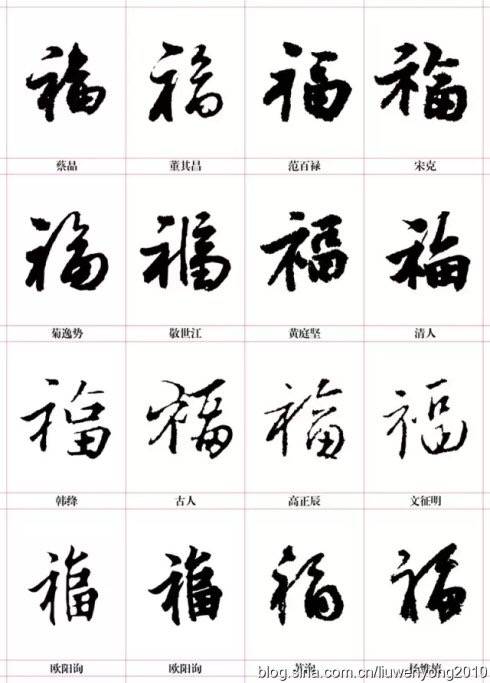 福 福 福 福
蔡晶 董其昌 范百禄 宋克
福 福 福 福
菊逸势 敬世江 黄庭坚 清人
福 福 福 福
韩绛 古人 高正辰 文征明
福 福 福 福
欧阳询 欧阳询
blog.sina.com.cn/liuwenyong2010